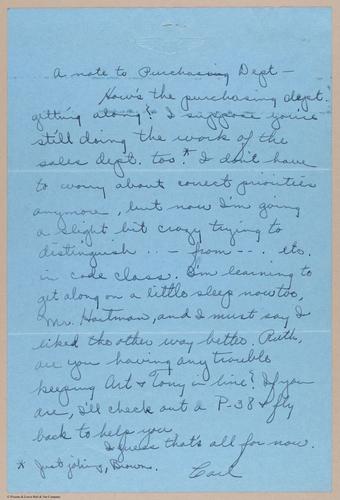 A note to Purchasing Dept —
How's the purchasing dept.
getting along? I suppose you're
still doing the work of the
sales dept. too.* I don't have
to worry about correct priorities
anymore, but now I'm going
a slight bit crazy trying to
distinguish .. – from –.. etc.
in code class. I'm learning to
get along on a little sleep now too,
Mr. Hartman, and I must say I
liked the other way better. Ruth,
are you having any trouble
keeping Art & Tony in line? If you
are, I'll check out a P-38 & fly
back to help you.
I guess that's all for now.
* Just joking, Brown.
Carl